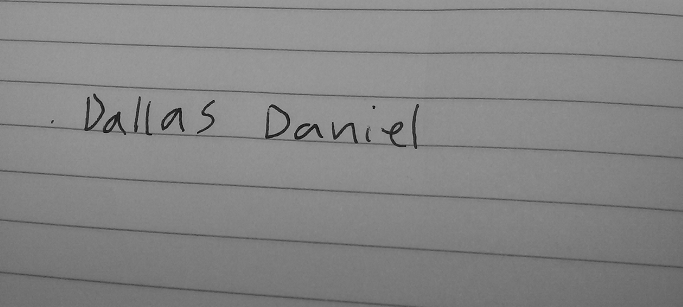 Dallas Daniel